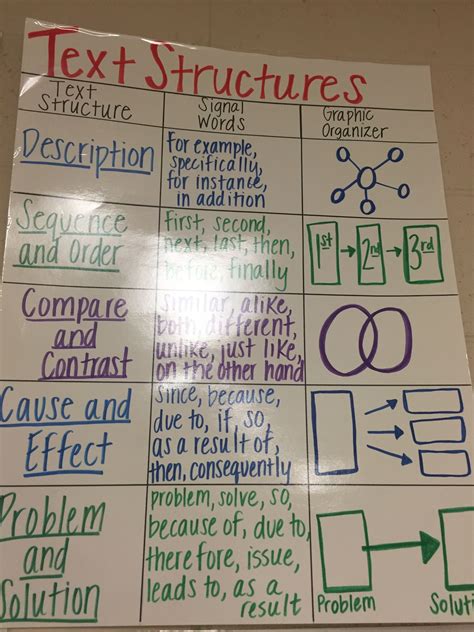 Text Structures
Text
Structure
Signal
Words
Graphic
Organizer
Description
for example,
specifically,
for instance,
in addition
Sequence
and Order
first, second,
next, last, then,
before, finally
1st
2nd
3rd
Compare
and
Contrast
similar, alike,
both, different,
unlike, just like,
on the other hand
Cause and
Effect
since, because,
due to, if, so,
as a result of,
then, consequently
Problem
and
Solution
problem, solve, so,
because of, due to,
therefore, issue,
leads to, as a
result
Problem
Solu